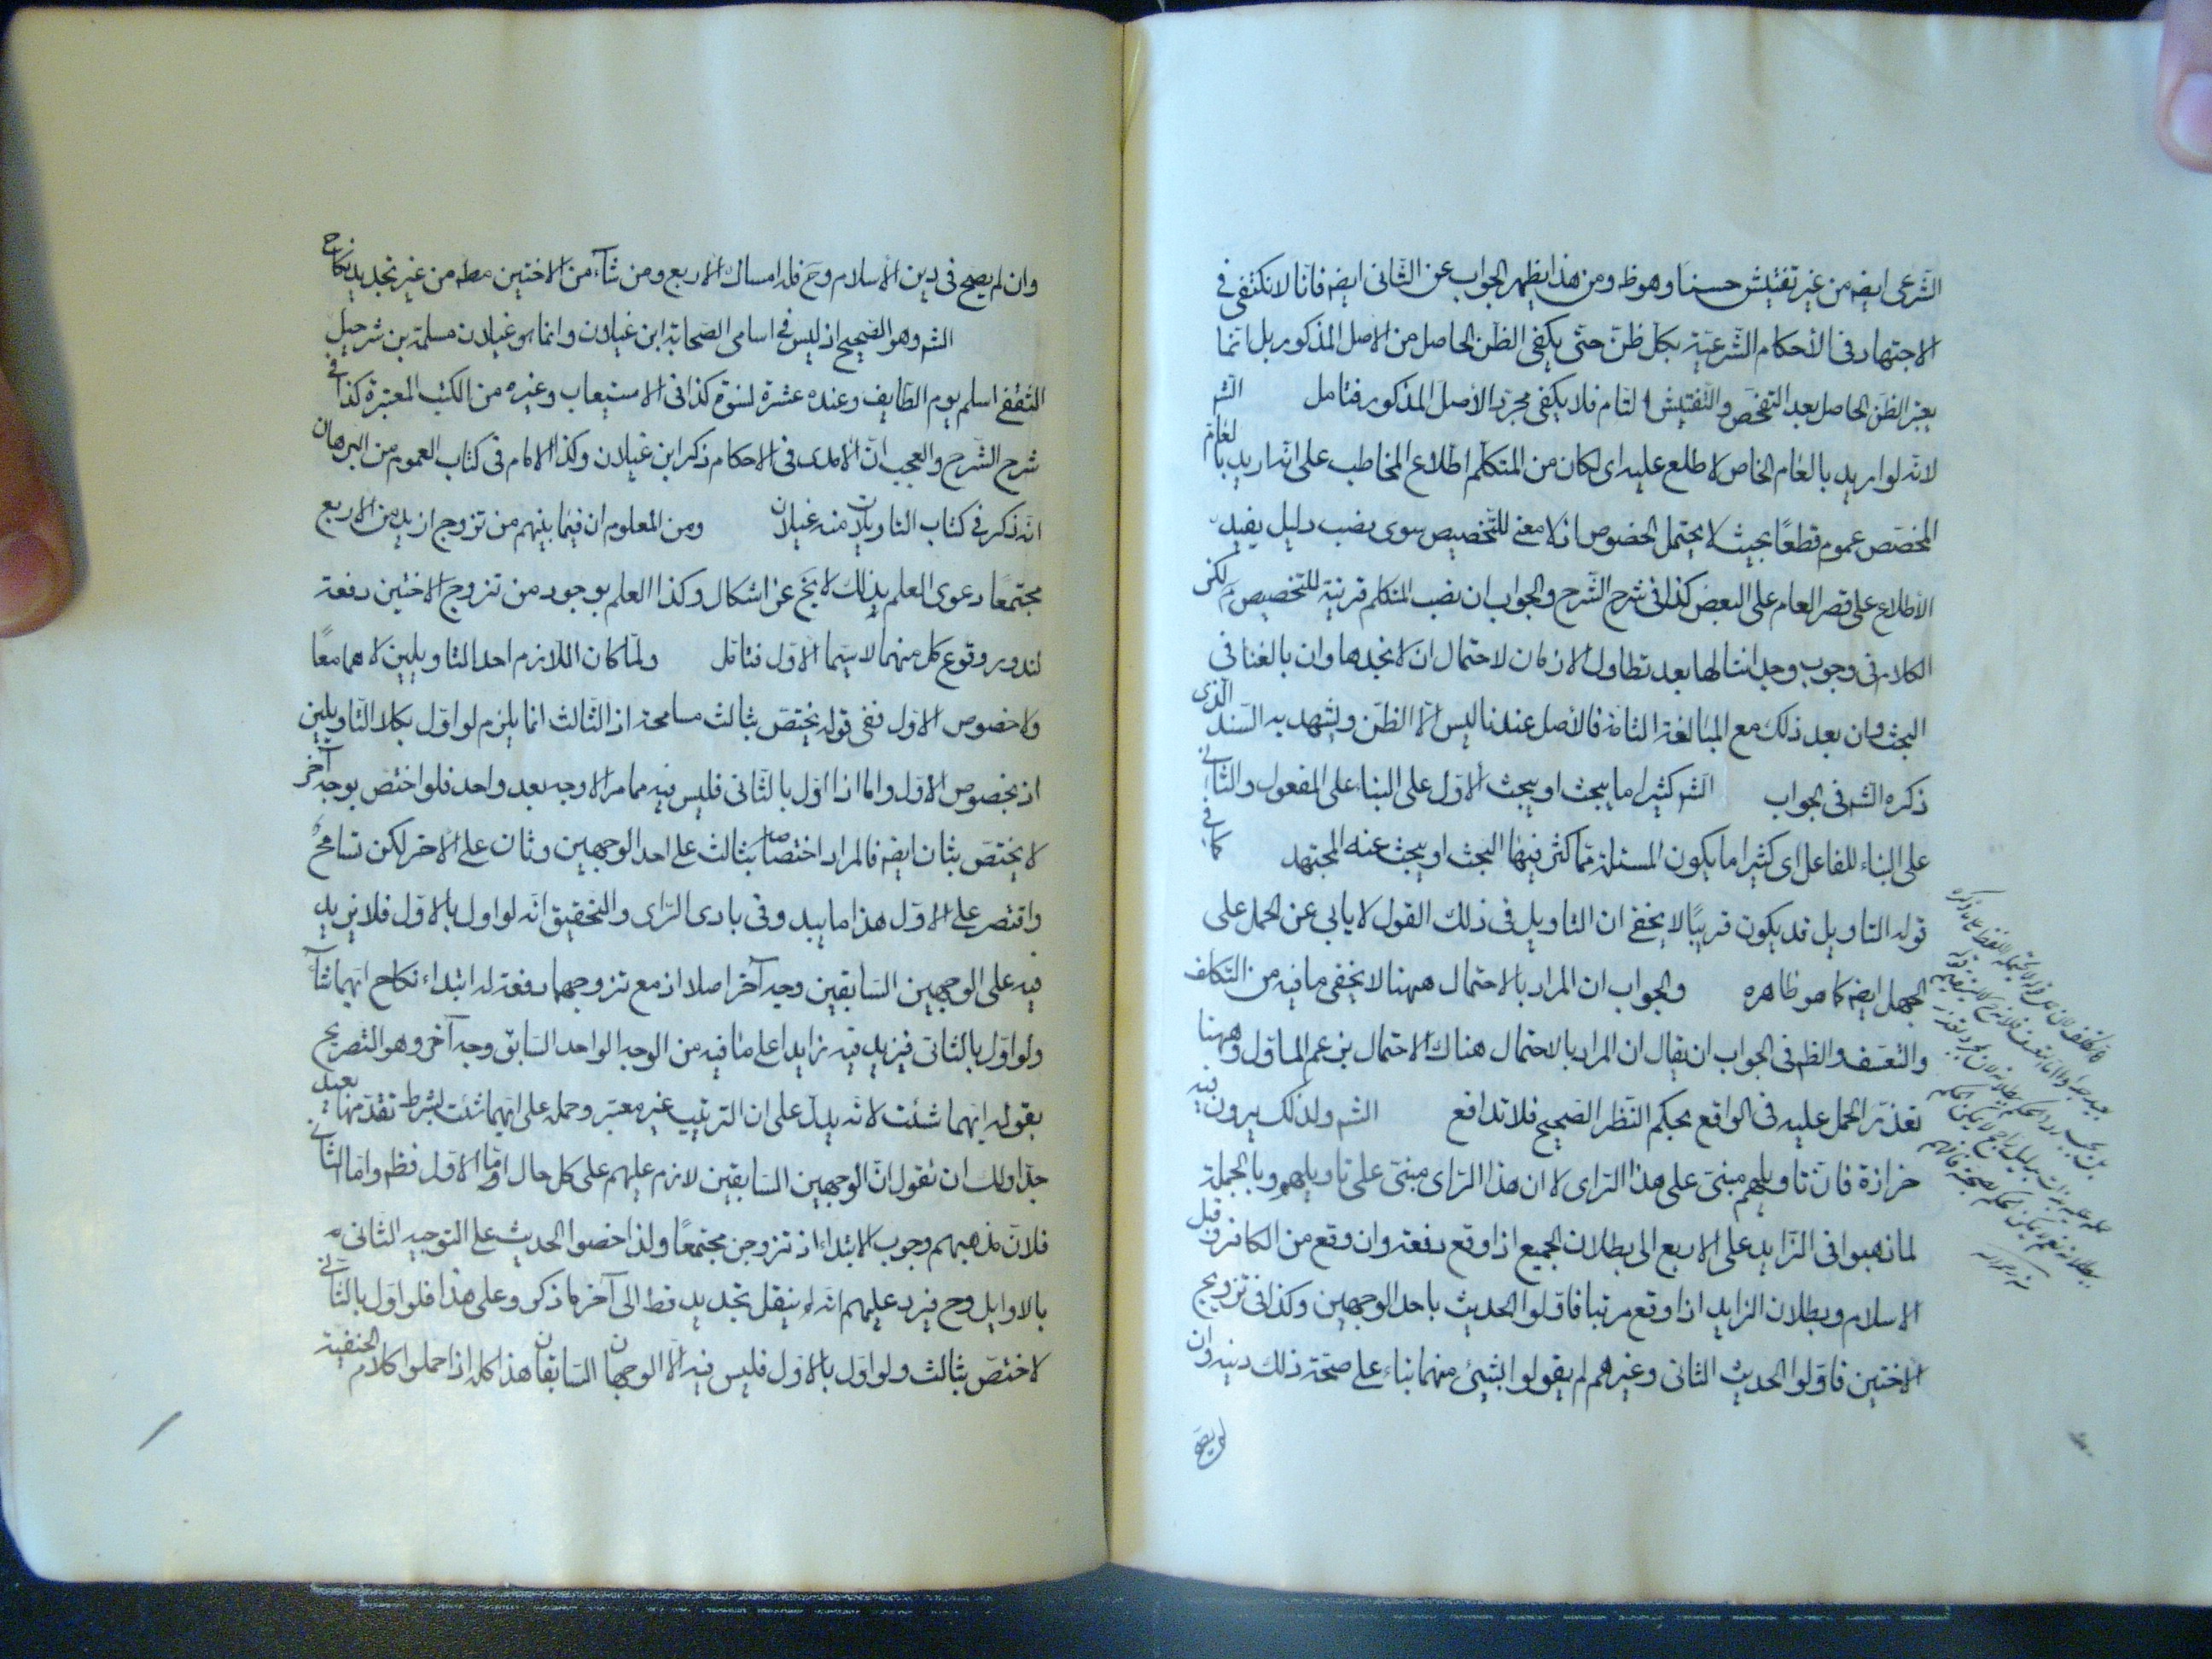 الشرعى ايضه من غير تفتيش حسنا وهوظ ومن هذا يظهر الجواب عن الثانى ايضه فانا لا نكتفى فى
الاجتهاد فى الأحكام الشرعية بكل ظن حتى يكفى الظن الحاصل من الاصل المذكور بل انما
يعتبر الظن الحاصل بعد التفحص والتفتيش التام فلا يكفى مجرد الأصل المذكور فتامل الشر
لانه لو اريد بالعام الخاص لاطلع عليه اى لكان من المتكلم اطلاع المخاطب على انه اريد بالعام
المخصص عموم قطعًا بحيث لا يحتمل الخصوص اذ لا معنى للتخصيص سوى نصب دليل يفيد
الأطلاع على قصر العام على البعض كذا فى شرح الشرح والجواب ان نصب المتكلم قرينة للتخصيص م لكن
الكلام فى وجوب وجداننا لها بعد تطاول الازمان لاحتمال ان لا نجدها وان بالغنا فى
البحث وان بعد ذلك مع المبالغة التامة فالأصل عندنا ليس الا الظن ويشهد به السند الذى
ذكره الشر فى الجواب الشر كثيرا ما يبحث او يبحث الاول على البناء على المفعول والثانى
على البناء للفاعل اى كثيرا ما يكون المسئلة مما كثر فيها البحث او يبحث عنه المجتهد كما فى
قوله التاويل قد يكون قريبًا لا يخفى ان التاويل فى ذلك القول لا يابى عن الحمل على
الجهل ايضه كما هو ظاهره والجواب ان المراد بالاحتمال ههنا لا يخفى ما فيه من التكلف
والتعسف والظم فى الجواب ان يقال ان المراد بالاحتمال هناك الاحتمال بزعم الماول وههنا
تعذر الحمل عليه فى الواقع بحكم النظر الصحيح فلا تدافع الشر ولذلك يرون فيه
حزازة فان تاويلهم مبنى على هذا الراى لا ان هذا الراى مبنى على تاويلهم وبالجملة
لما ذهبوا فى الزايد على الاربع الى بطلان الجميع اذا وقع دفعة وان وقع من الكافر قبل
الاسلام وبطلان الزايد اذا وقع مرتبا فاولوا الحديث باحد الوجهين وكذا فى تزويج
الاختين فاولوا الحديث الثانى وغيرهم لم يقولوا بشئ منهما بناء على صحة ذلك دينه وان
لم يصح
وان لم يصح فى دين الأسلام وح فله امساك الاربع ومن شاء من الاختين مطه من غير تجديد نكاح
الشر وهو الصحيح اذ ليس فى اسامى الصحابة ابن غيلان وانما هو غيلان مسلمة بن شرحبيل
الثقفى اسلم يوم الطايف وعنده عشرة نسوة كذا فى الاستيعاب وغيره من الكتب المعتبرة كذا فى
شرح الشرح والعجب ان الامدى فى الاحكام ذكر ابن غيلان وكذا الامام فى كتاب العموم من البرهان
انه ذكر فى كتاب التاويلات منه غيلان ومن المعلوم ان فيما بينهم من تزوج ازيد من الاربع
مجتمعًا دعوى العلم بذلك لا يخ عن اشكال وكذا العلم بوجود من تزوج الاختين دفعة
لندور وقوع كل منهما لا سيما الاول فتامل ولما كان اللازم احد التاويلين لا هما معًا
ولا خصوص الاول ففى قوله يختص بثالث مسامحة اذ الثالث انما يلزم لو اول بكلا التاويلين
او بخصوص الأول واما اذا اول بالثانى فليس فيه مما مر الا وجه بعد واحد فلو اختص بوجه آخر
لا يختص بثان ايضه فالمراد اختصاصه بثالث على احد الوجهين وثان على الاخر لكن تسامح
واقتصر على الاول هذا ما يبدو فى بادى الراى والتحقيق انه لو اول بالاول فلا يزيد
فيه على الوجهين السابقين وجه آخر اصلا اذ مع تزوجهما دفعة له ابتداء نكاح ايهما شاء
ولو اول بالثانى فيزيد فيه زايدا على ما فيه من الوجه الواحد السابق وجه آخر وهو التصريح
بقوله ايهما شئت لانه يدل على ان الترتيب غير معتبر وحمله على ايهما شئت بشرط تقدمها بعيد
جدا ولك ان تقول ان الوجهين السابقين لازم عليهم على كل حال اما الاول فظم واما الثانى
فلان مذهبهم وجوب الابتداء اذ تزوجن مجتمعًا ولذا خصوا الحديث على التوجيه الثانى
بالاوايل وح فيرد عليهم انه لم ينقل تجديد قط الى آخر ما ذكر وعلى هذا فلو اول بالثانى
لاختص بثالث ولو اول بالاول فليس فيه الا الوجهان السابقان هذا كله اذا حملوا كلام الحنفية